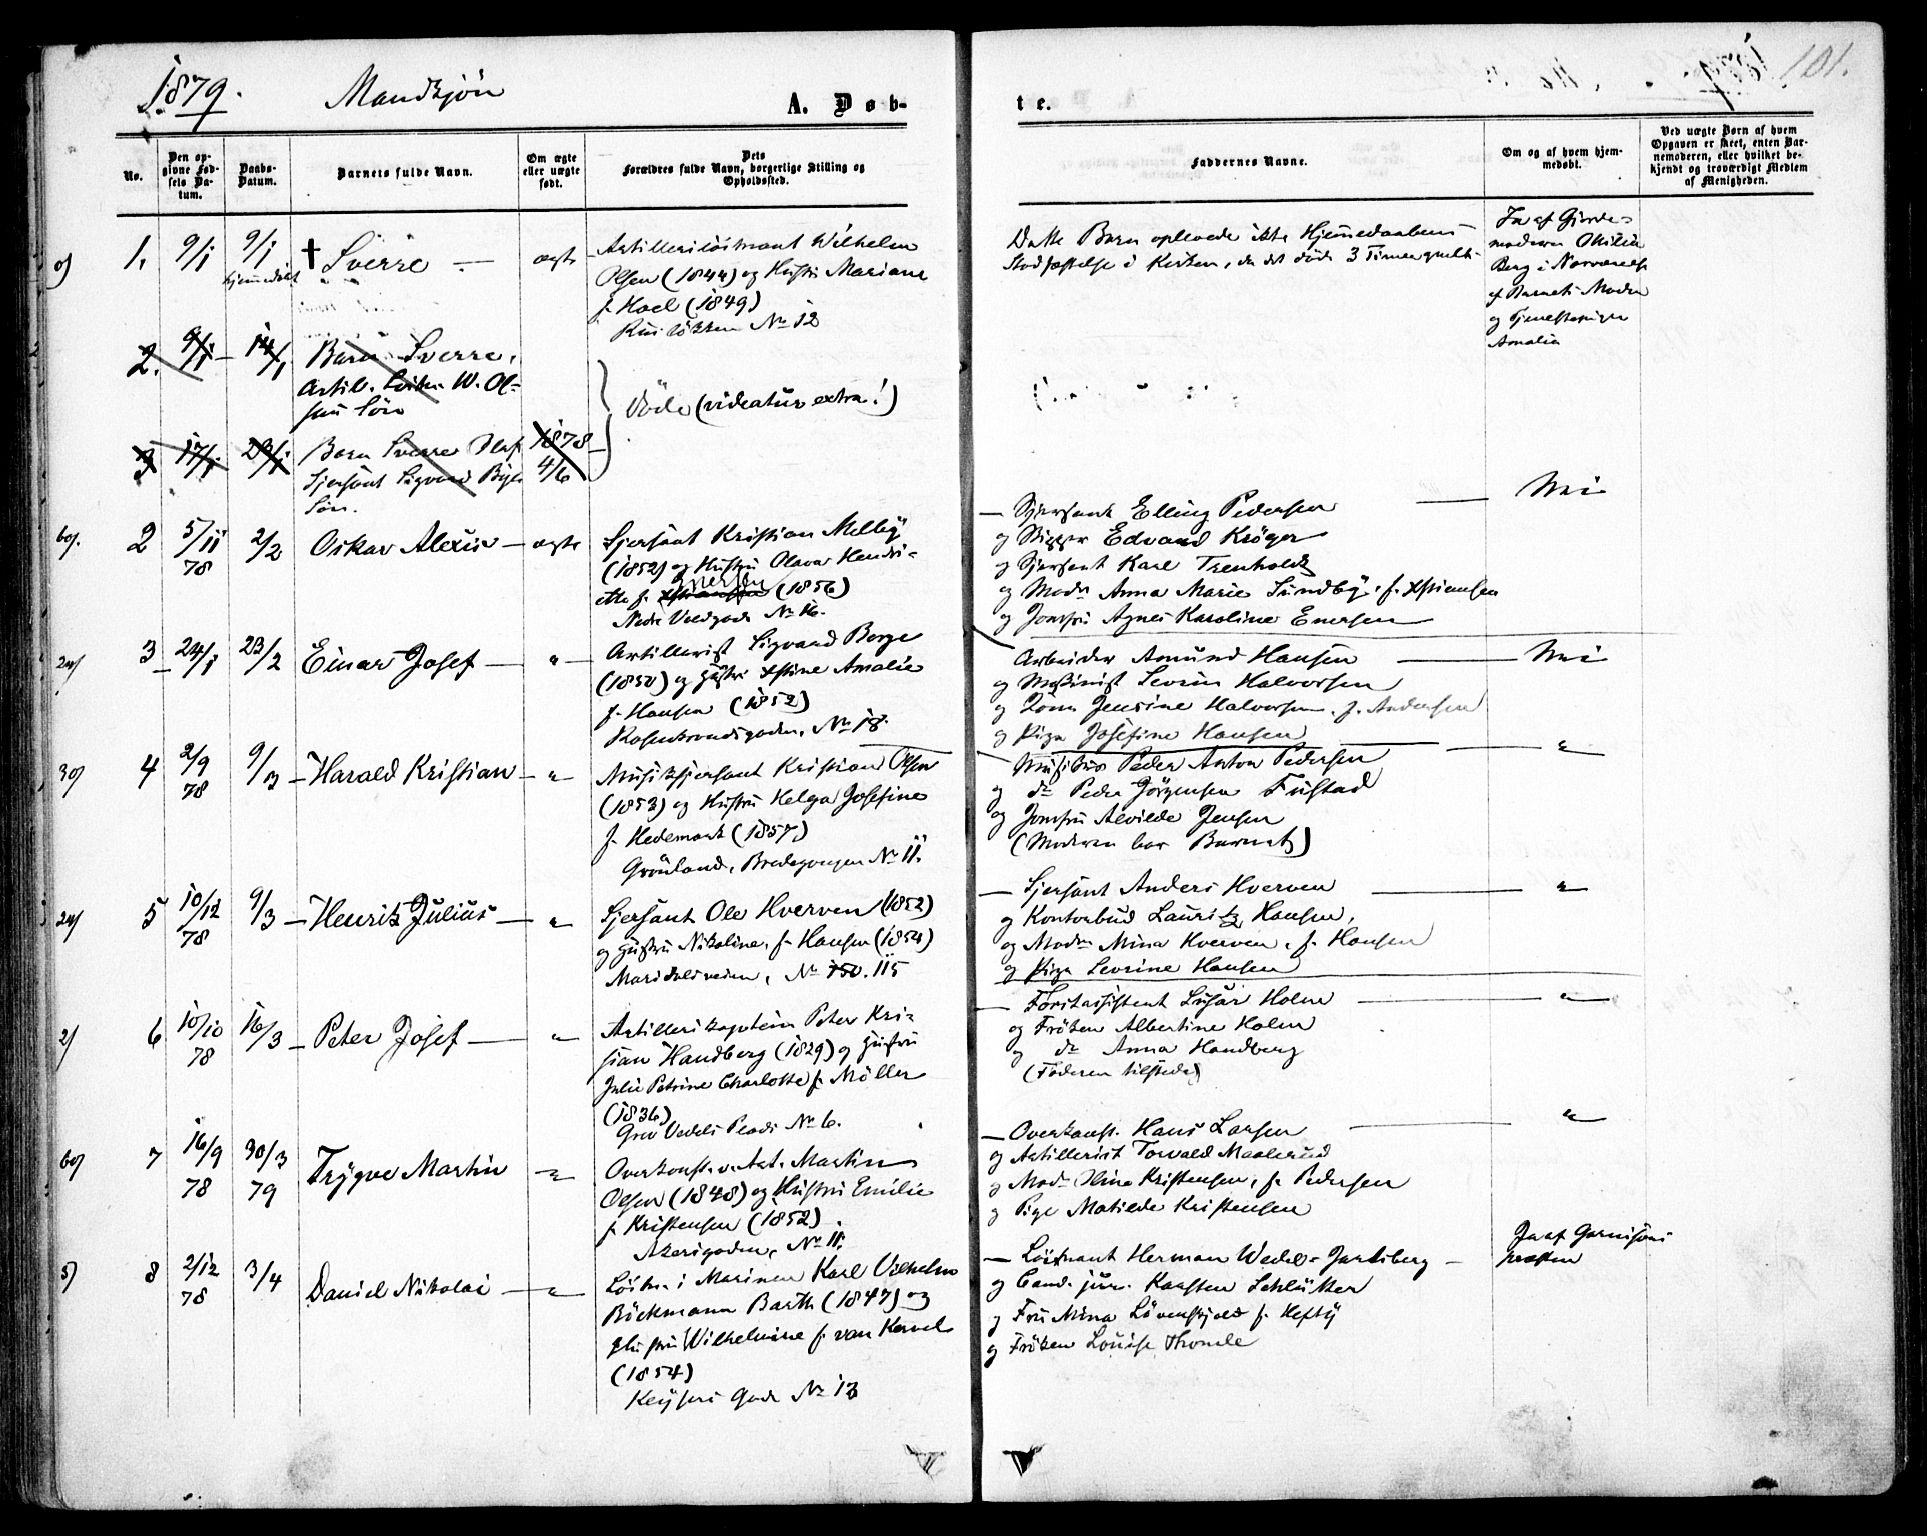 1879.
Mandkjön
A. Døb-
te.
101.
No.
Den op-
givne Fød-
sels Da-
tum.
Daabs-
Datum.
Barnets fulde Navn.
Om ægte
eller uægte
født.
Dets
Forældres fulde Navn, borgerlige Stilling og
Opholdssted.
Faddernes Navne.
Om og af hvem hjem-
medøbt.
Ved uægte Børn af hvem
Opgaven er skeet, enten Bar-
nemoderen, eller hvilket be-
kjendt og troværdigt Medlem
af Menigheden.
1. 9/1 9/1 hjemmedöbt † Sverre — ægte
Artilleriløitnant Wilhelm
Olsen (1844) og Hustru Mariane
f. Hoel (1849)
Ruslökken No 12
Dette Barn oplevede ikke Hjemmedaabens
Stadfæstelse i Kirken, da det döde 3 Timer gmlt.
Ja af Gjorde-
moderen Otilia
Berg i Nærværelse
af Barnets Moder
og Tjenestepigen
Amalia
2. 9/1 — 14/1 Barn Sverre,
Artil. Löitn. W. Ol-
sens Sön
Döde (videatur extra!)
3 17/1 23/1 Barn Sverre Olaf 1878
Sjersant Sigvard Byes 4/6
Sön.
2 5/11 78 2/2 Oskar Alexis — ægte
Sjersant Kristian Melby
(1852) og Hustru Olava Hendri-
ette f. Enersen (1856)
Nedre Voldgade No 16.
— Sjersant Elling Pedersen — Nei
og Bygger Edvard Kröger
og Sjersant Karl Trenholdt
og Madm Anna Marie Sundby, f. Xstiansen
og Jomfru Agnes Karoline Enersen
3 — 24/1 23/2 Einar Josef — " —
Artillerist Sigvard Berge
(1850) og Hustru Xstine Amalie
f. Hansen (1852)
Rosenkrandsgaden, No 18.
Arbeider Amund Hansen — Nei
og Maskinist Severin Halvorsen
og Kone Jensine Halvorsen, f. Andersen
og Pige Josefine Hansen
4 2/9 78 9/3 — Harald Kristian — " —
Musiksjersant Kristian Olsen
(1853) og Hustru Helga Josefine
f. Hedemark (1857)
Grönland, Bredegangen No 11.
— Musikus Peder Anton Pedersen — "
og do Peder Jörgensen Fustad
og Jomfru Alvilde Jensen
(Moderen bar Barnet)
5 10/12 78 9/3 — Henrik Julius — " —
Sjersant Ole Hverven (1852)
og Hustru Nikoline, f. Hansen (1854)
Maridalsveien, No 150. 115
— Sjersant Anders Hverven — "
og Kontorbud Lauritz Hansen,
og Madm Mina Hverven, f. Hansen
og Pige Severine Hansen
6 10/10 78 16/3 — Peter Josef — " —
Artillerikaptein Peter Kri-
stian Handberg (1829) og Hustru
Julie Petrine Charlotte f. Möller
(1836)
Grev Vedels Plads No 6.
— Forstassistent Lusär Holm — "
og Fröken Albertine Holm
og do Anna Handberg
(Faderen tilstede)
7 16/9 78 30/3 79 Trygve Martin — " —
Overkonst. v. Art. Martin
Olsen (1848) og Hustru Emilie
f. Kristensen (1852)
Akersgaden, No 11.
— Overkonst. Hans Larsen — "
og Artillerist Torvald Maalerud
og Madm Olina Kristensen, f. Pedersen
og Pige Matilde Kristensen
8 2/12 78 3/4 Daniel Nikolai — " —
Löitn. i Marinen Karl Vilhelm
Böckmann Barth (1847) og
Hustru Wilhelmine f. van Kervel
(1854)
Keysers Gade No 13
— Löitnant Herman Wedel-Jarlsberg —
og Cand. jur. Karsten Schlütter
og Fru Mina Lövenskjold f. Hefty
og Fröken Louise Thomle
Ja af Garnisons
præsten